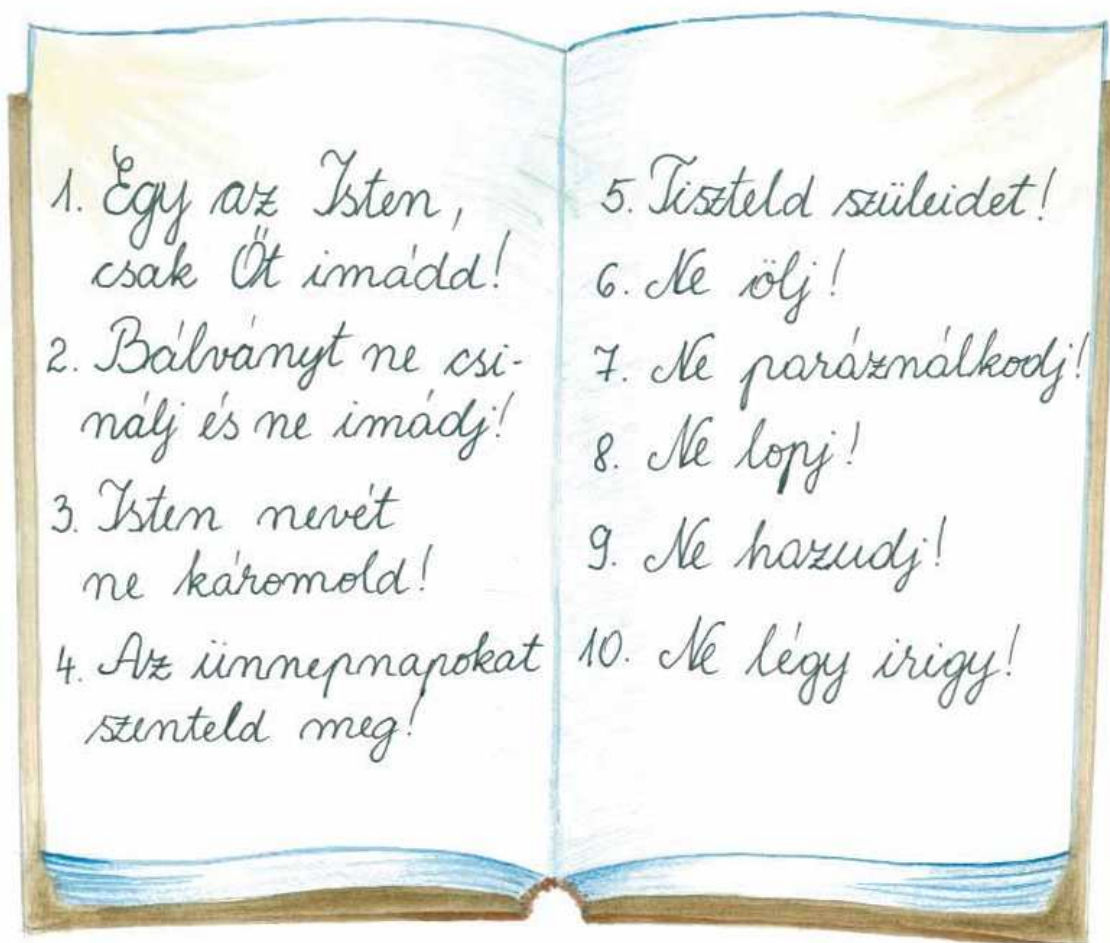 1. Egy az Isten,
csak Őt imádd!
2. Bálványt ne csi-
nálj és ne imádj!
3. Isten nevét
ne káromold!
4. Az ünnepnapokat
szenteld meg!
5. Tiszteld szüleidet!
6. Ne ölj!
7. Ne paráználkodj!
8. Ne lopj!
9. Ne hazudj!
10. Ne légy irigy!